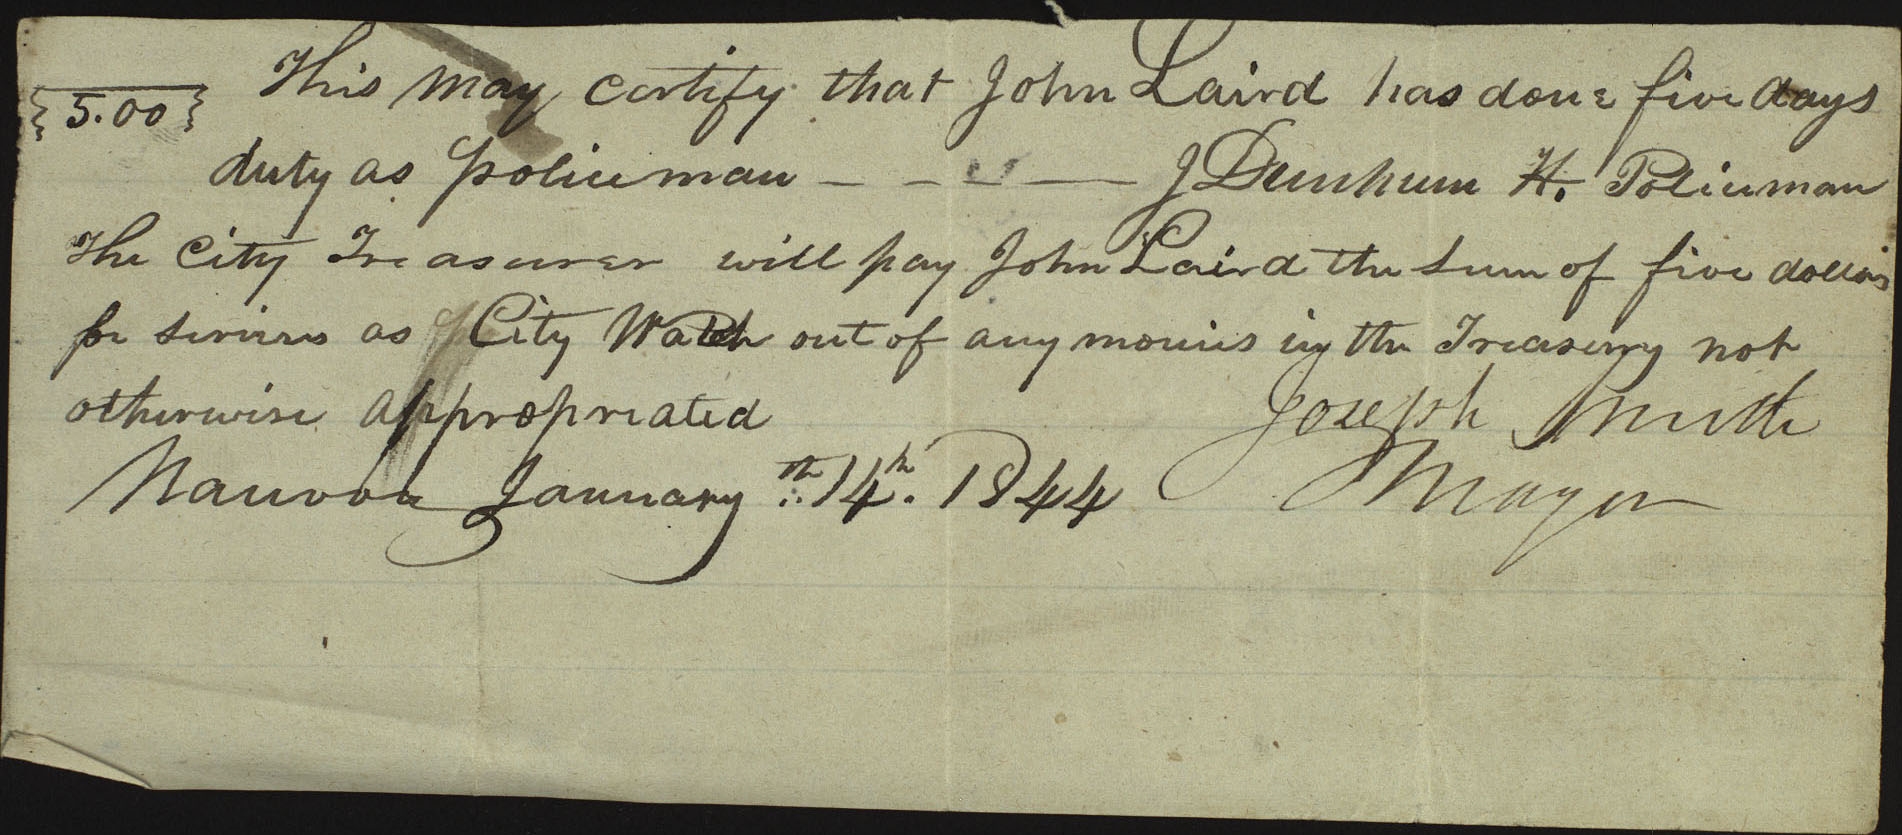 {5.00} This may certify that John Laird has done five days
duty as policeman – – – — J Dunham H. Policeman
The City Treasurer will pay John Laird the sum of five dollars
for servires as City Watch out of any monies in the Treasury not
otherwise appropreated Joseph Smith
Nauvoo January th 14th. 1844 Mayor